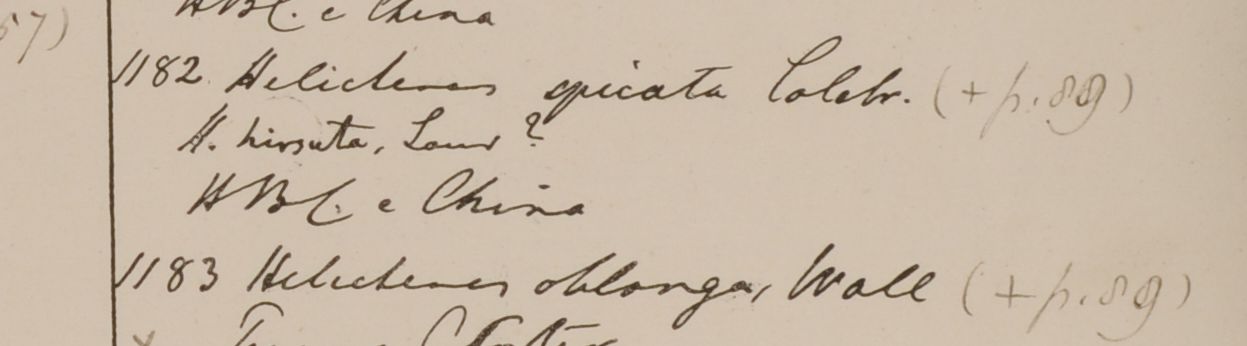 57)
HBC. e China
1182 Helicteres spicata Colebr. (+ p. 89)
H. hirsuta, Lour ?
HBC. e China
1183 Helicteres oblonga, Wall (+ p. 89)